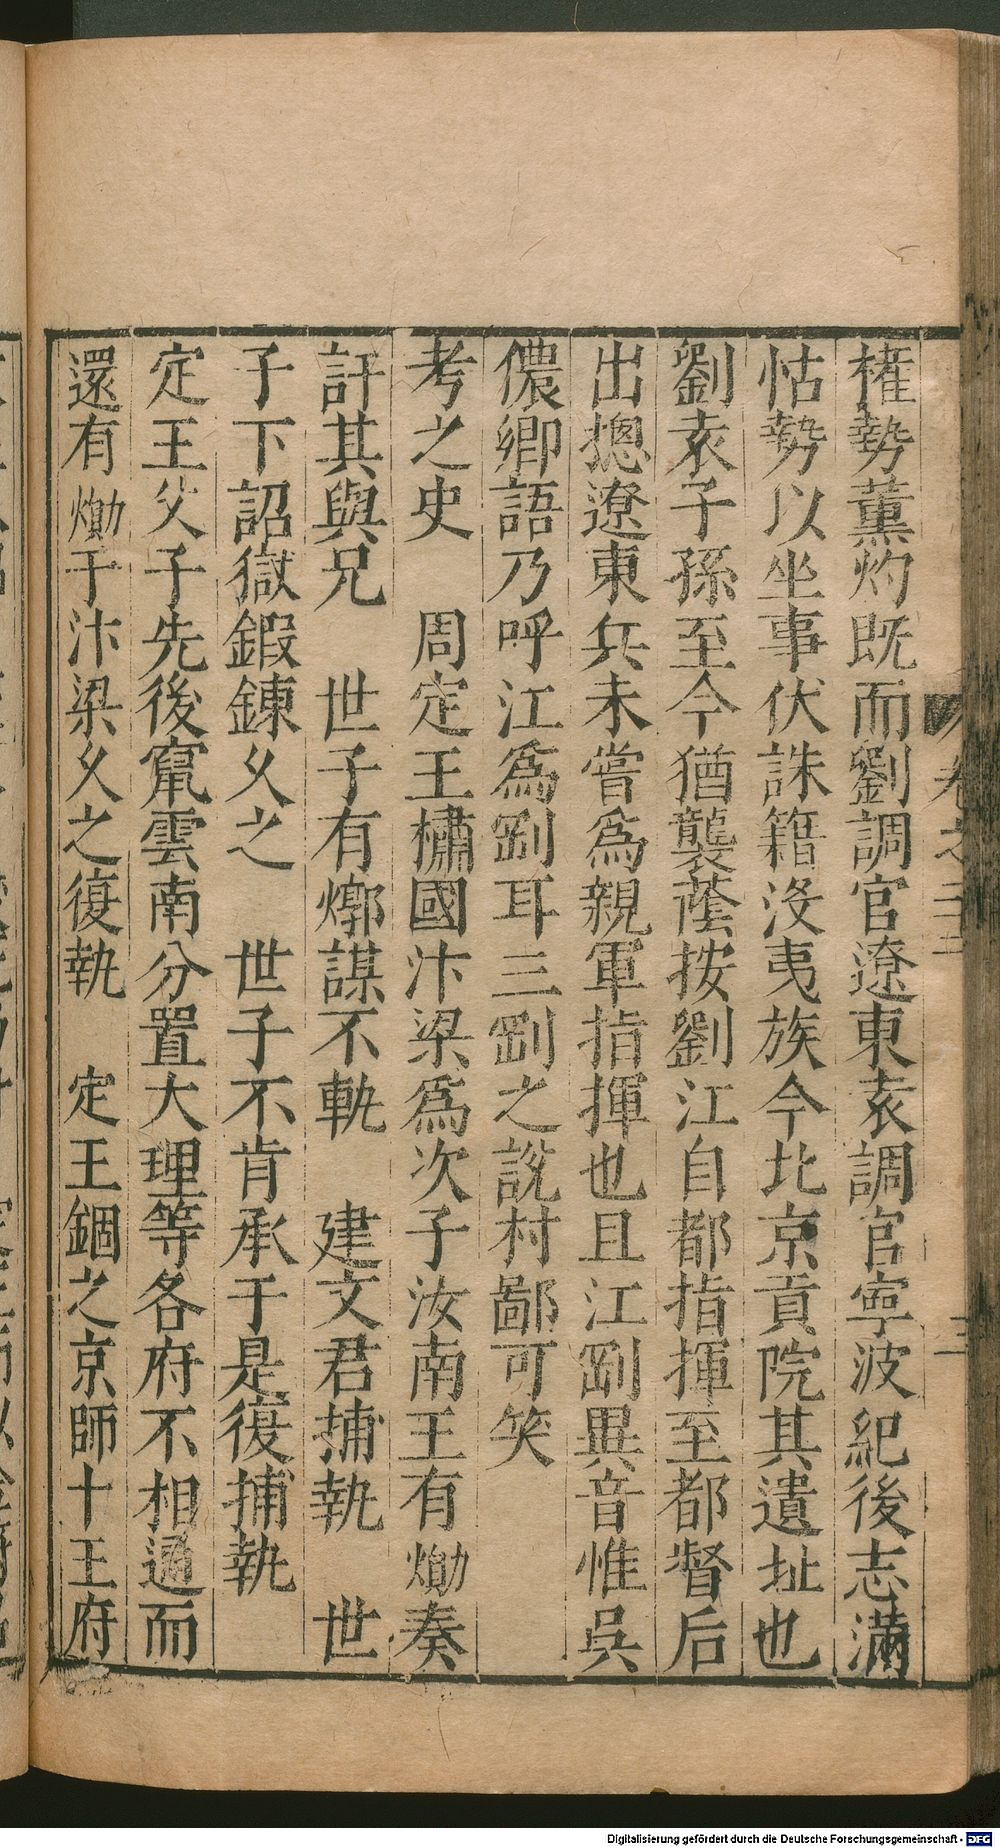 權勢薰灼既而劉調官遼東袁調官寧波紀後志滿
怙勢以坐事伏誅籍没夷族今北京貢院其遺址也
劉袁子孫至今猶襲蔭按劉江自都指揮至都督后
出摠遼東兵未嘗為親軍指揮也且江剛異音惟吳
儂卿語乃呼江為剛耳三剛之説村鄙可笑
考之史　周定王橚國汴梁為次子汝南王有爋奏
訐其與兄　世子有燉謀不軌　建文君捕執　世
子下詔獄鍜鍊久之　世子不肯承于是復捕執
定王父子先後竄雲南分置大理等各府不相通而
還有爋于汴梁久之復執　定王錮之京師十王府
卷之二十二
三
Digitalisierung gefördert durch die Deutsche Forschungsgemeinschaft - DFG